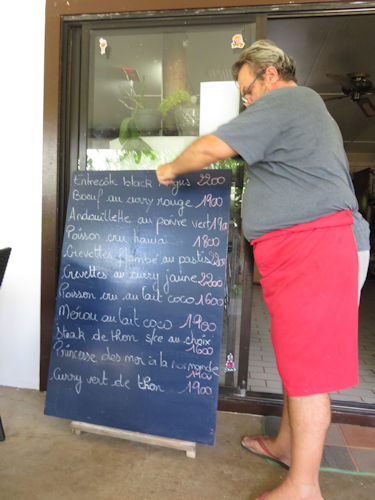 Entrecôte black Angus 2200
Boeuf au curry rouge 1900
Andouillette au poivre vert 190
Poisson cru hawaï 1800
Crevettes flambé au pastis 220
Crevettes au curry jaune 2200
Poisson cru au lait coco 1600
Mérou au lait coco 1900
Steak de thon sce au choix
1600
Princesse des mer à la normande
1900
Curry vert de thon 1900